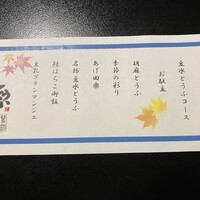 豆水とうふコース
お献立
胡麻とうふ
季節の彩り
あげ田楽
名物豆水とうふ
鮭はらこ御飯
豆乳ブランマンジェ